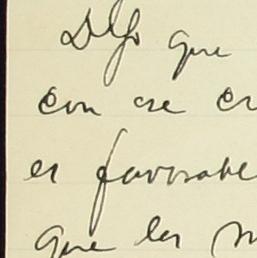 que
con ese cr
es favorable
que les m